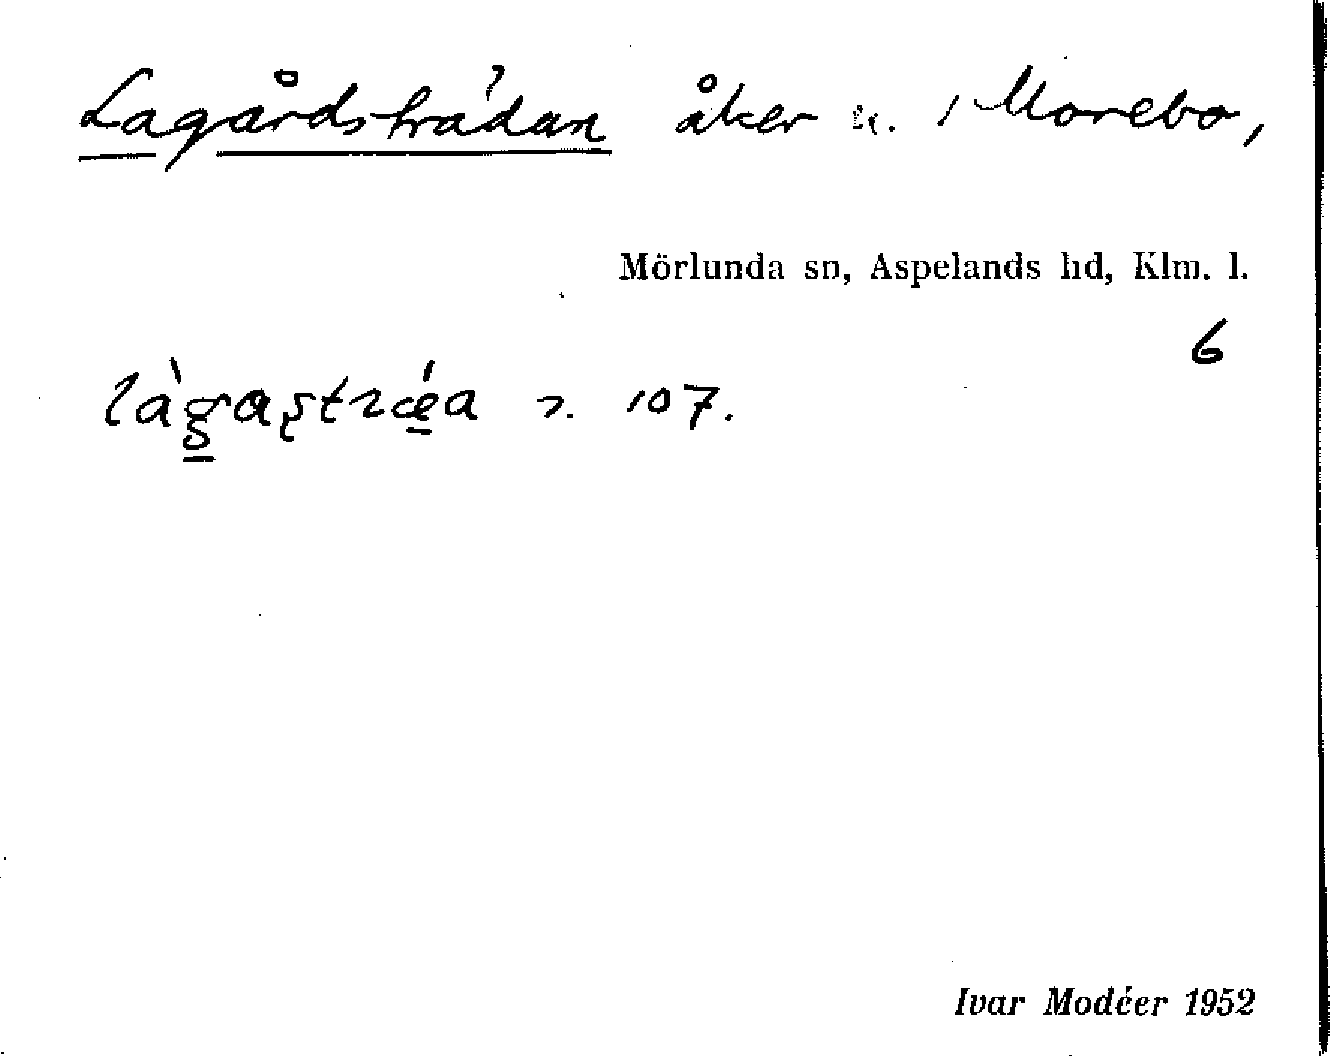 Lagårdsträdan åker u. Morebo,
Mörlunda sn, Aspelands hd, Klm. l.
6
107.
Ivar Modéer 1952